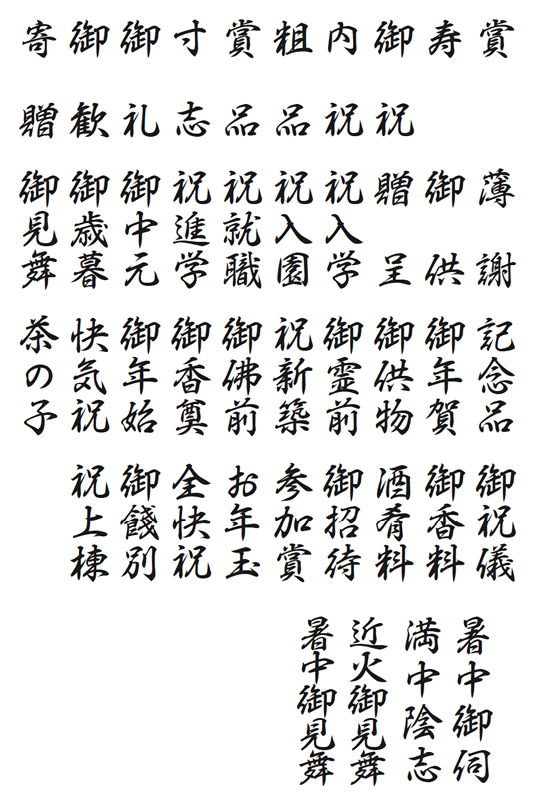 賞
寿
御祝
内祝
粗品
賞品
寸志
御礼
御歓
寄贈
薄謝
御供
贈呈
祝入学
祝入園
祝就職
祝進学
御中元
御歳暮
御見舞
記念品
御年賀
御供物
御霊前
祝新築
御佛前
御香奠
御年始
快気祝
茶の子
御祝儀
御香料
酒肴料
御招待
参加賞
お年玉
全快祝
御餞別
祝上棟
暑中御伺
満中陰志
近火御見舞
暑中御見舞